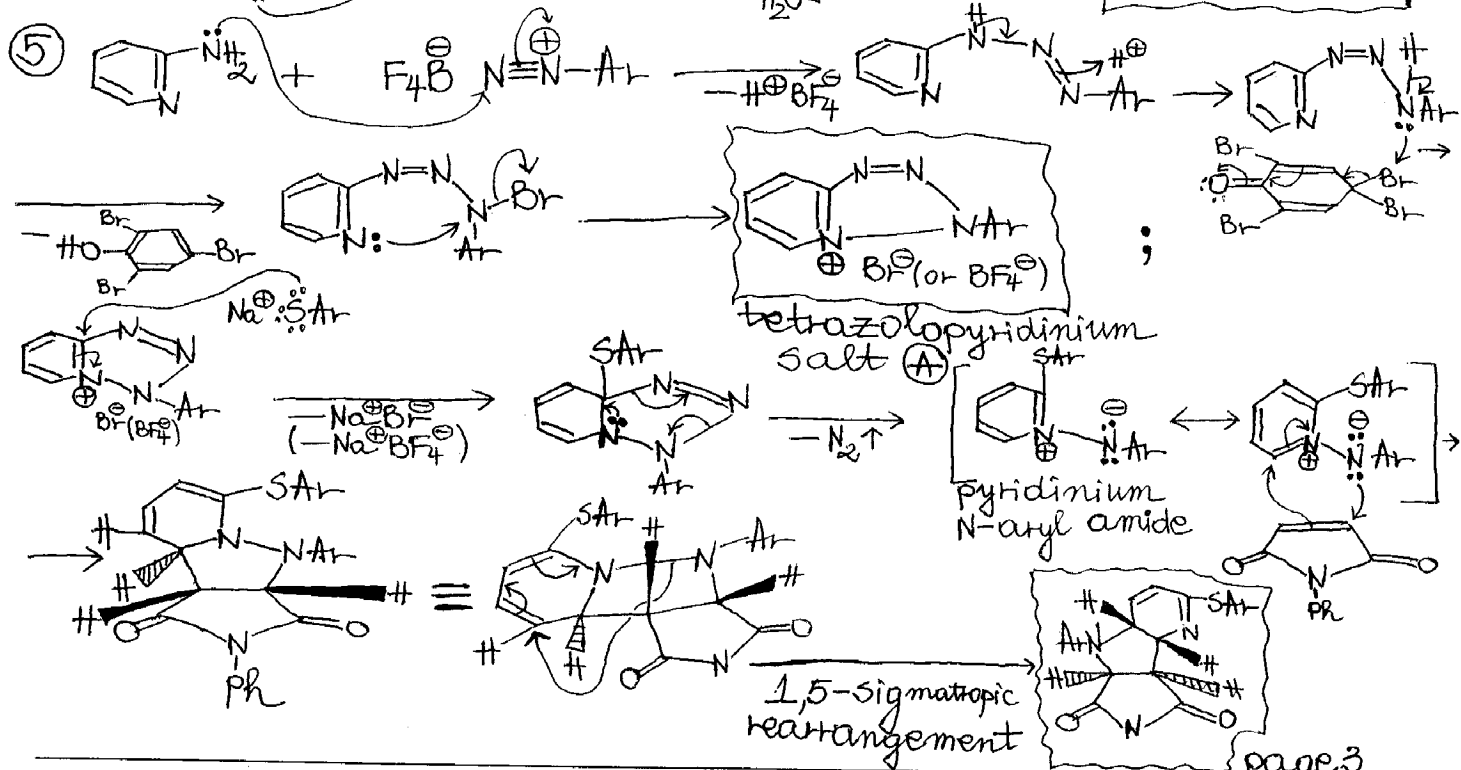 H₂O
⑤ NH₂ N + F₄B⊖ N≡N⊕-Ar
-H⊕BF₄⊖
N H N N-Ar H⊕
N N=N H NAr
Br Br Br Br :O
- HO Br Br Br
N=N N-Br Ar N:
N=N NAr N⊕ Br⊖(or BF₄⊖)
;
tetrazolopyridinium
salt Ⓐ
Na⊕ :SAr
N N N N Ar ⊕ Br⊖(BF₄⊖)
-Na⊕Br⊖
(-Na⊕BF₄⊖)
SAr N N N N Ar
-N₂↑
SAr N⊕ N⊖Ar
SAr N⊕ N⊖Ar
pyridinium
N-aryl amide
O N O Ph
SAr H N NAr H H H O N O Ph
≡
SAr H N N-Ar H H H O N O
1,5-sigmatropic
rearrangement
H SAr ArN N H H H O N O
page 3